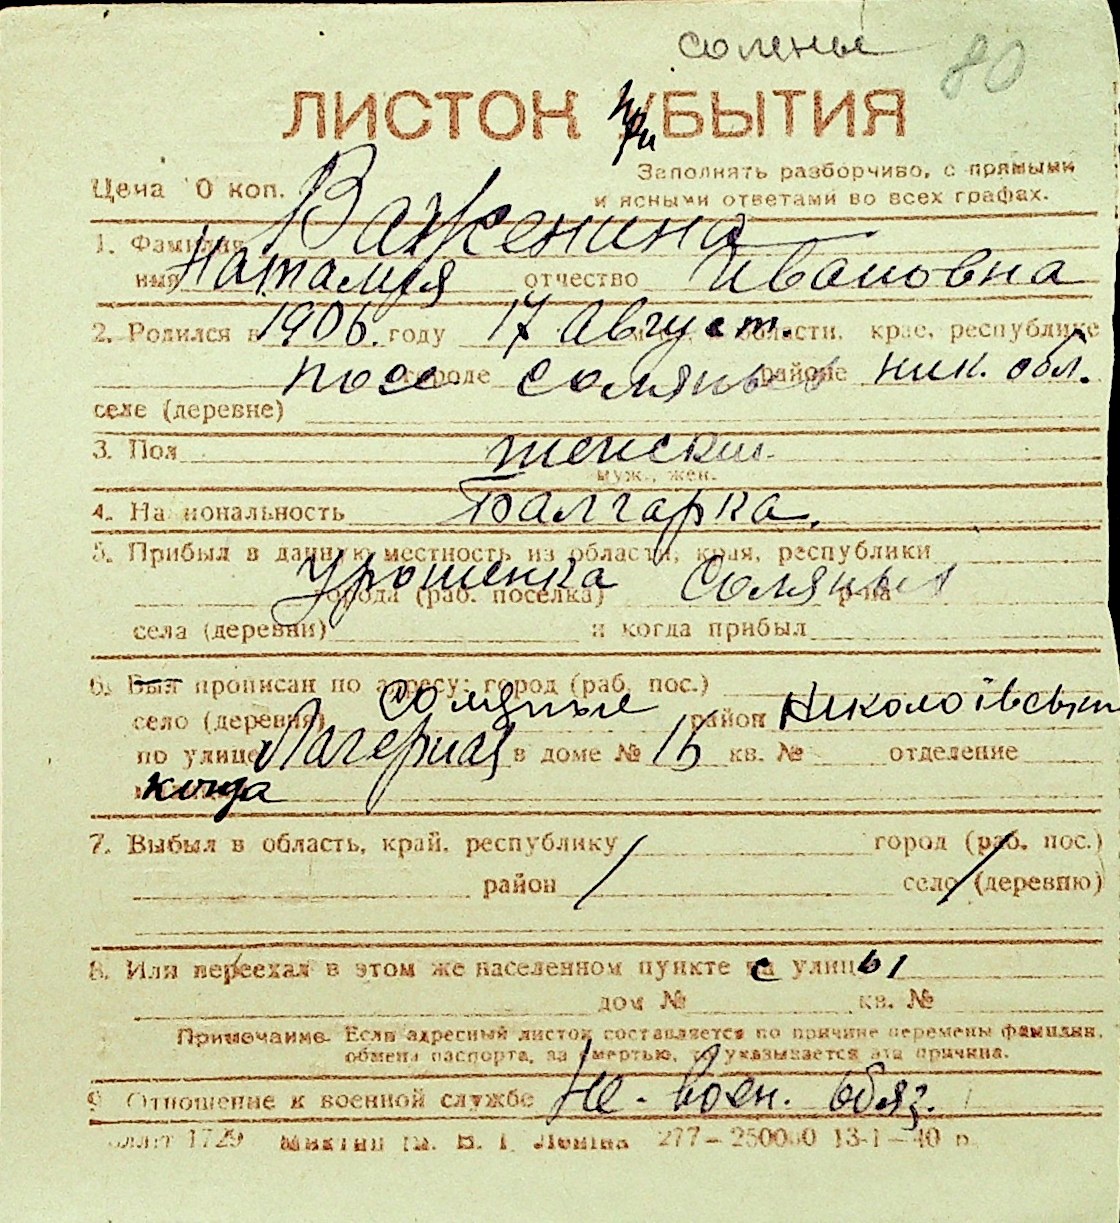 соленые 80
ЛИСТОК при БЫТИЯ
Цена 10 коп. Заполнять разборчиво, с прямыми
и ясными ответами во всех графах.
1. Фамилия Важенина
имя Наталия отчество Ивановна
2. Родился в 1906. году 17 Август. области, крае, республике
посе городе соляные районе ник. обл.
селе (деревне)
3. Пол женский
муж., жен.
4. Национальность Балгарка.
5. Прибыл в данную местность из области, края, республики
города (раб. поселка) Соляные р-на
села (деревни) и когда прибыл
6. Был прописан по адресу: город (раб. пос.)
село (деревня) соляные район
по улице Лагерная в доме № 15 кв. № отделение
когда
7. Выбыл в область, край, республику город (раб. пос.)
район село (деревню)
8. Или переехал в этом же населенном пункте с улицы
дом № кв. №
Примечание. Если адресный листок составляется по причине перемены фамилии,
обмена паспорта, за смертью, то указывается эта причина.
9. Отношение к военной службе Не - воен. обяз.
1729 277—250000 13-1—40 р.